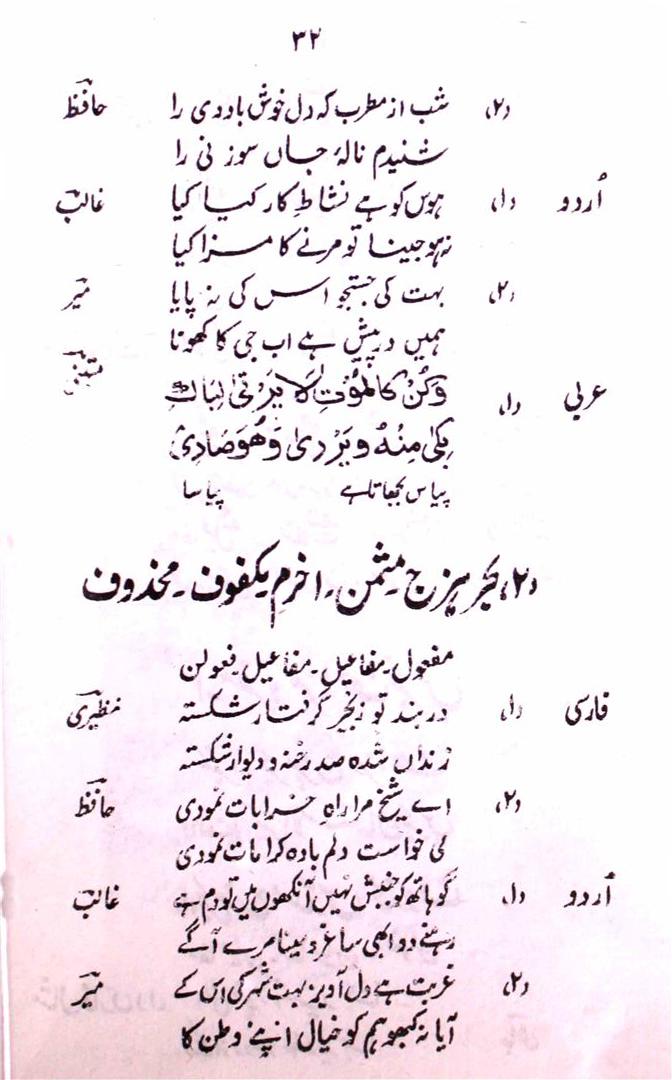 ۳۲
(۲) شب از مطرب که دل خوش باد وی را حافظؔ
شنیدم نالۂ جاں سوز نی را
اُردو (۱) ہوس کو ہے نشاطِ کار کیا کیا غالبؔ
نہ ہو جینا تو مرنے کا مزا کیا
(۲) بہت کی جستجو اس کی نہ پایا میرؔ
ہمیں درپیش ہے اب جی کا کھونا
عربی (۱) وَکُنْ کَالْمَوْتِ لَا یَرْثِیْ لِبَاكٍ متنبیؔ
بَکیٰ مِنْهُ وَ یَرْویٰ وَهُوَ صَادِیْ
پیاس بجھاتا ہے پیاسا
(۲) بحر ہزج ۔ مثمن ۔ اخرم ۔ مکفوف ۔ محذوف
مفعول ۔ مفاعیل ۔ مفاعیل ۔ فعولن
فارسی (۱) در بند تو زنجیر گرفتار شکستہ نظیریؔ
زنداں شدہ صد رخنہ و دیوار شکستہ
(۲) اے شیخ مرا راہِ خرابات نمودی حافظؔ
می خواست دلم بادہ کرامات نمودی
اُردو (۱) گو ہاتھ کو جنبش نہیں آنکھوں میں تو دم ہے غالبؔ
رہنے دو ابھی ساغر و مینا مرے آگے
(۲) غربت ہے دل آویز بہت شہر کی اس کے میرؔ
آیا نہ کبھو ہم کو خیال اپنے وطن کا